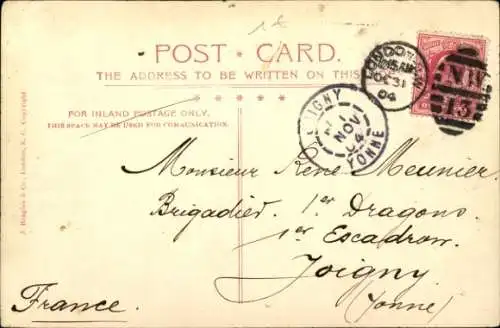 POST CARD.
THE ADDRESS TO BE WRITTEN ON THIS
FOR INLAND POSTAGE ONLY.
THIS SPACE MAY BE USED FOR COMMUNICATION.
LONDON
OC 31
04
N.W
13
JOIGNY
1
NOV
04
YONNE
Monsieur René Meunier.
Brigadier. 1er Dragons.
1er Escadron.
Joigny
(Yonne)
France.
& Co., London, E. C. Copyright